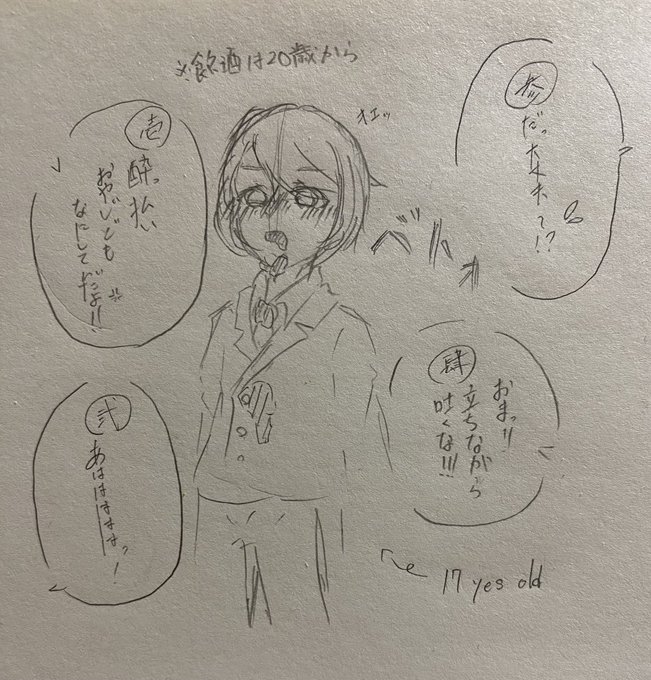 ※飲酒は20歳から
オエッ
壱
酔っ払い
おやじども
なにしてだよ!!
弐
あはははははっ!
だって!?
肆
おまっ!!
立ちながら
吐くな!!!
17 yes old